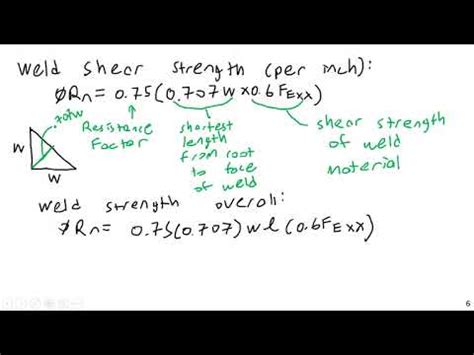 weld shear strength (per inch):
ØRn = 0.75(0.707w x0.6FEXX)
.707w
w
w
Resistance
Factor
shortest
length
from root
to face
of weld
shear strength
of weld
material
weld strength overall:
ØRn= 0.75(0.707)wl(0.6FEXX)
6